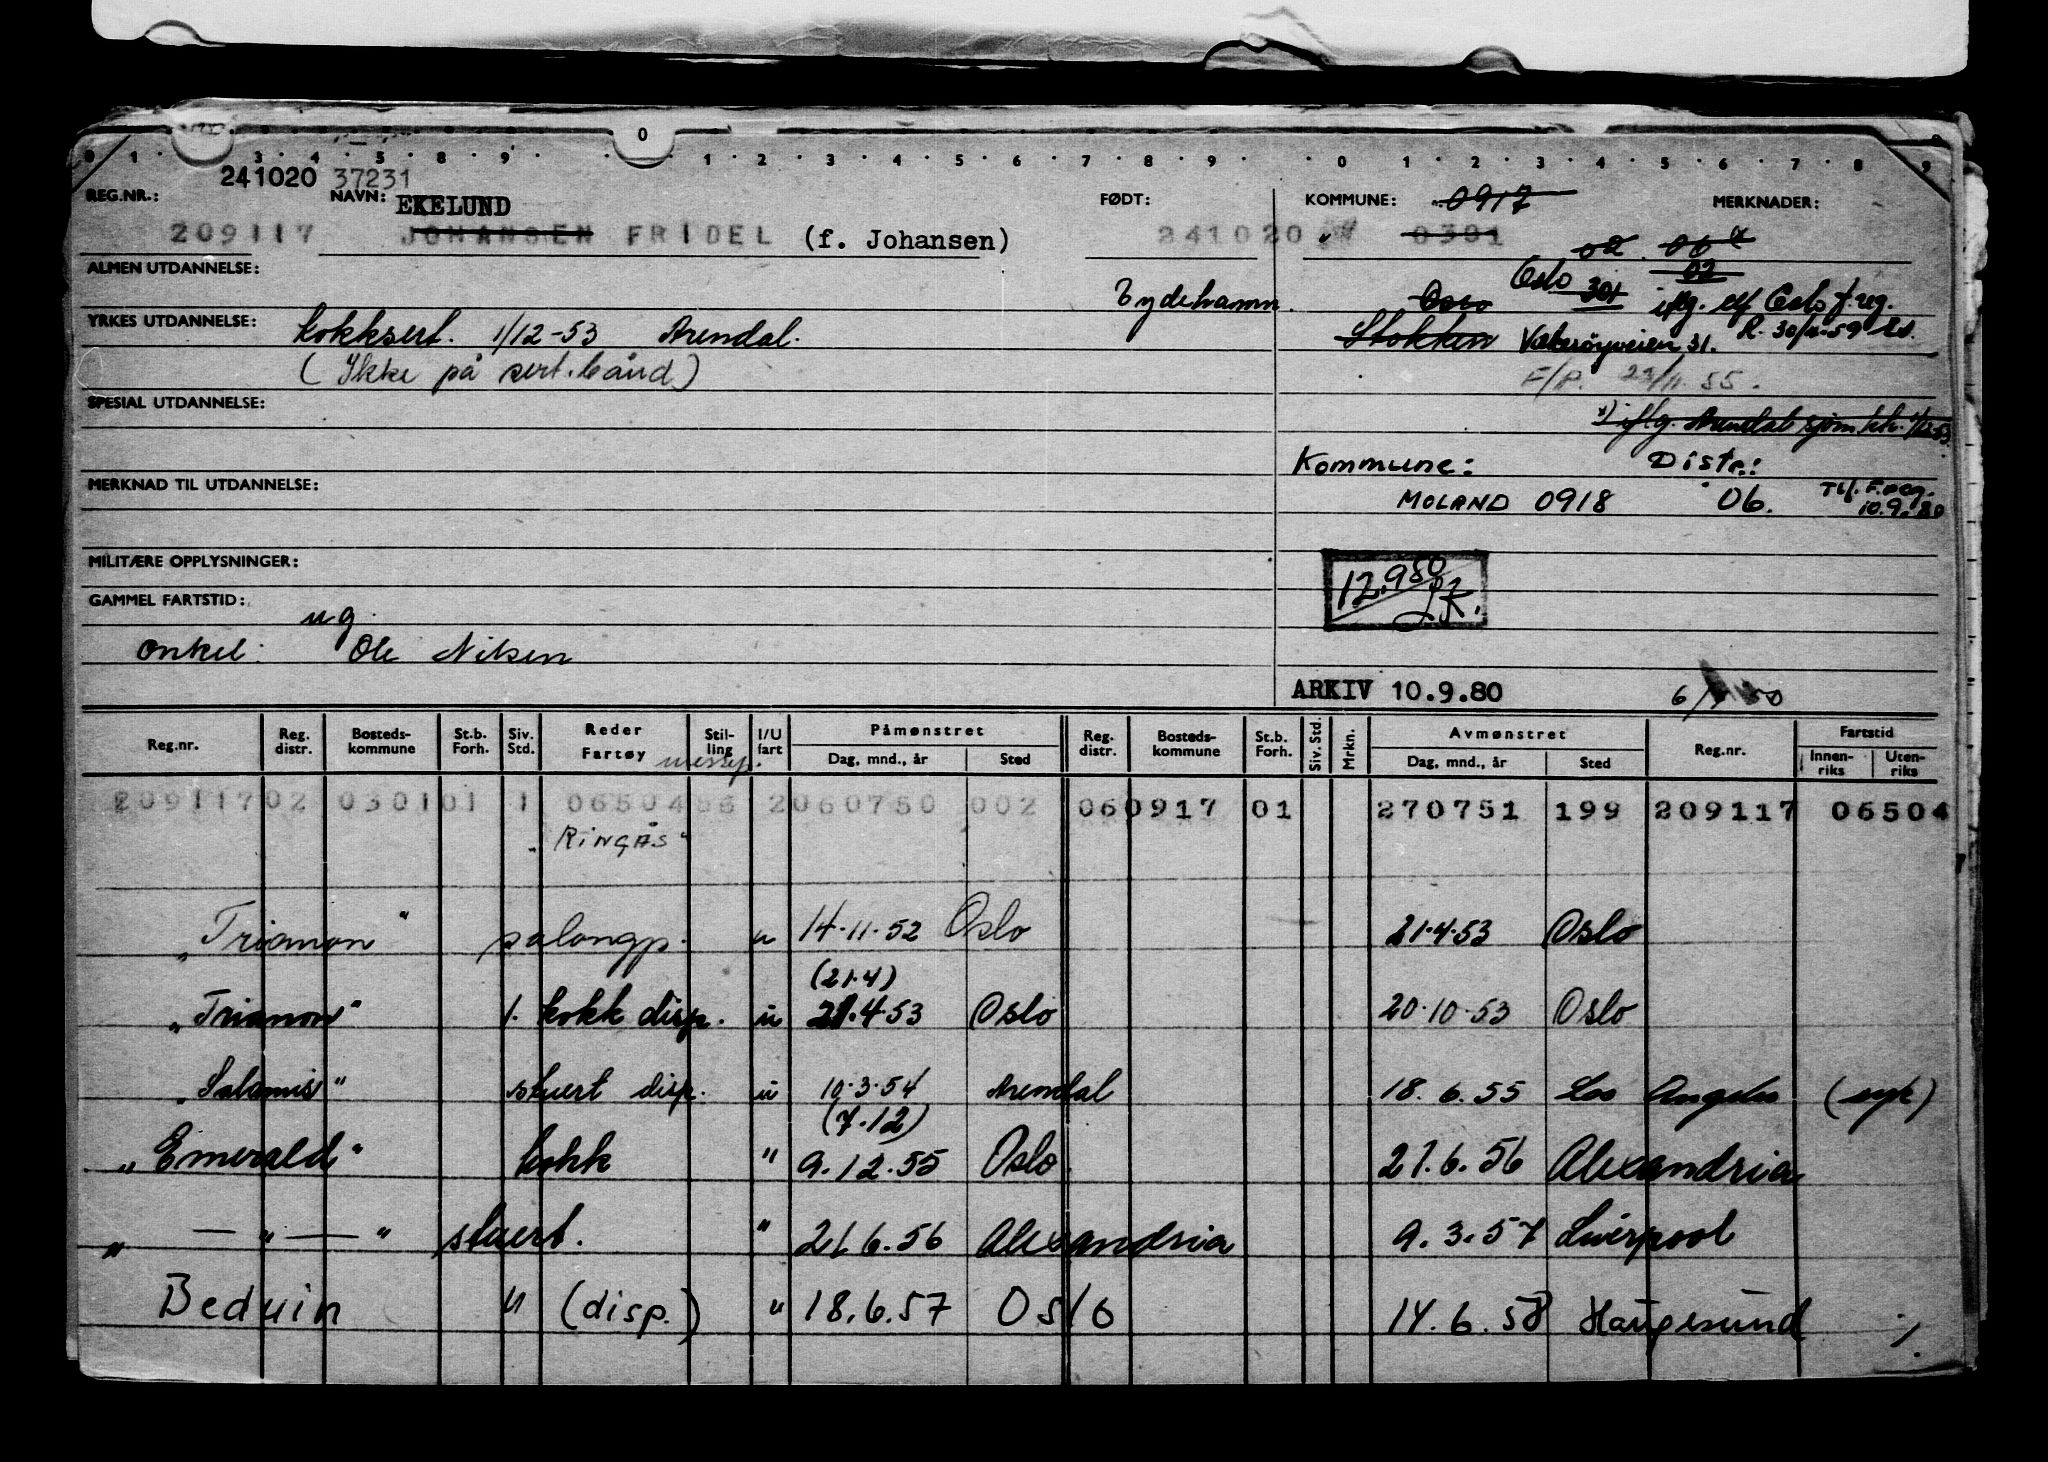 0
0 1 3 4 5 8 9 1 2 3 4 5 6 7 8 9 0 1 2 3 4 5 6 7 8 9
241020 37231
REG.NR.: NAVN: EKELUND FØDT: KOMMUNE: 0917 MERKNADER:
209117 JOHANSEN FRIDEL (f. Johansen) 241020 0301
02 06 x
ALMEN UTDANNELSE: Oslo 02
Eydehamn. Oslo 301 iflg. Oslo f.reg.
YRKES UTDANNELSE: kokksert. 1/12-53 Arendal. Stokken Vækerøyveien 31. R. 30/11-59
(Ikke på sert.bånd) F/R. 23/11.55.
SPESIAL UTDANNELSE: x) iflg. Arendal sjøm.ktr. 1/12.53
Kommune: Distr.:
MERKNAD TIL UTDANNELSE: MOLAND 0918 06. Tlf. F.reg. 10.9.80
MILITÆRE OPPLYSNINGER: 12.9.80
GAMMEL FARTSTID: ug.
onkel: Ole Nilsen
ARKIV 10.9.80
Reg.nr. Reg. distr. Bosteds-kommune St.b. Forh. Siv. Std. Reder Fartøy Stil-ling I/U fart Påmønstret Dag, mnd., år Sted Reg. distr. Bosteds-kommune St.b. Forh. Siv. Std. Mrkn. Avmønstret Dag, mnd., år Sted Reg.nr. Fartstid Innen-riks Uten-riks
messep.
209117 02 0301 01 1 0650486 2 060750 002 06 0917 01 270751 199 209117 06504
"RINGÅS"
"Trianon" salongp. u 14.11.52 Oslo 21.4.53 Oslo
(21.4)
"Trianon" 1. kokk disp. u 21.4.53 Oslo 20.10.53 Oslo
"Salamis" stuert disp. u 10.3.54 Arendal 18.6.55 Los Angeles (syk)
(7.12)
"Emerald" kokk " 9.12.55 Oslo 21.6.56 Alexandria
" — " — " stuert. " 21.6.56 Alexandria 9.3.57 Liverpool
Beduin " (disp.) " 18.6.57 Oslo 14.6.58 Haugesund ./.